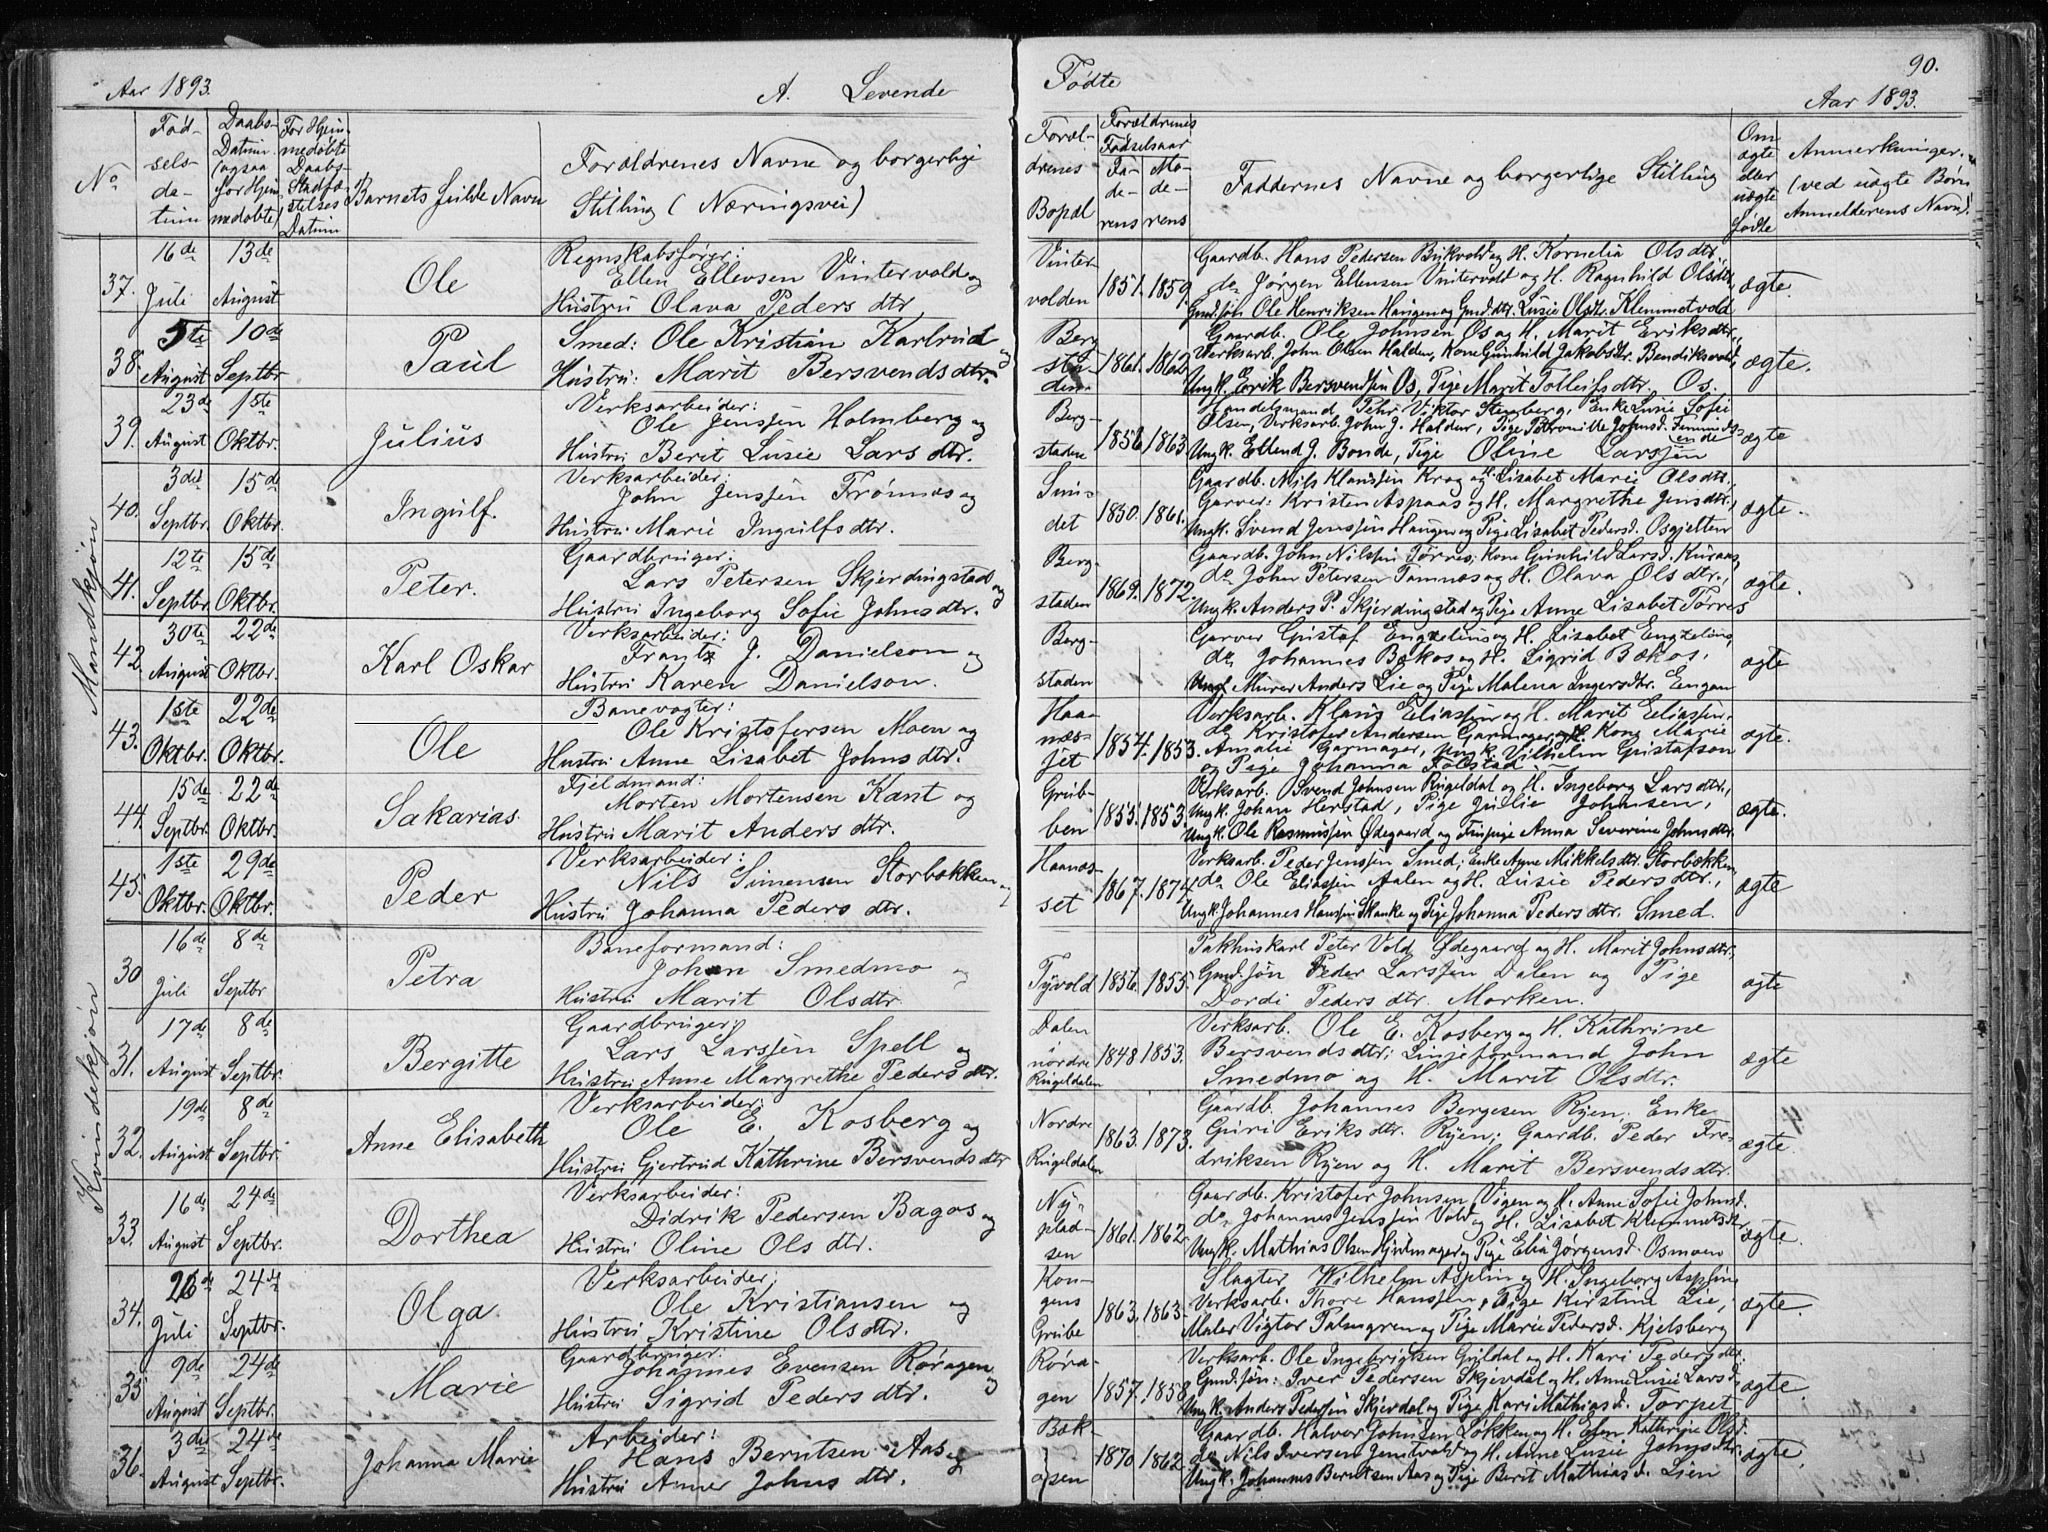 Aar 1893.
A. Levende
Fødte
90.
Aar 1893.
No
Fød-
sels-
da-
tum
Daabs-
Datum
(ogsaa
for Hjem
medøbte)
For Hjem-
medøbte
Daabs-
Stadfæ-
stelses
Datum
Barnets fulde Navn
Forældrenes Navne og borgerlige
Stilling (Næringsvei)
Foræl-
drenes
Bopæl
Forældrenes
Fødselsaar
Fa-
de-
rens
Mo-
de-
rens
Faddernes Navne og borgerlige Stilling
Om
ægte
eller
uægte
fødte
Anmerkninger.
(ved uægte Børn
Anmelderens Navn).
Mandkjøn
37. 16de Juli 13de August
Ole
Regnskabsfører:
Ellen Ellevsen Vintervold og
Hustru Olava Peders dtr
Vinter
volden
1851. 1859.
Gaardb. Hans Pedersen Bukvold og H. Kornelia Olsdtr.
do Jørgen Ellensen Vintervold og H. Ragnhild Olsdtr.
Gmd. søn Ole Henriksen Haugen og Gmd. dtr. Lusie Olsdtr. Klemmetvold
ægte.
38. 5te August 10de Septbr
Paul
Smed: Ole Kristian Karlrud og
Hustru: Marit Bersvends dtr.
Berg
sta
den
1861. 1862
Gaardb. Ole Johnsen Os og H. Marit Eriks dtr.,
Verksarb. John Olsen Halden, Kone Gunhild Jakobsdtr. Bendiksvold,
Ungk. Erik Bersvendsen Os, Pige Marit Tollefsdtr. Os.
ægte.
39. 23de August 1ste Oktbr.
Julius
Verksarbeider:
Ole Jenssen Holmberg og
Hustru Berit Lusie Lars dtr.
Berg-
staden
1856 1863
Handelsmand Pehr Viktor Stenberg, Enke Lusie Sofie
Olsen, Verksarb. John J. Halden, Pige Petronille Johnsd. Femunds-
enden
Ungk. Ellend J. Bonde, Pige Oline Larssen
ægte
40. 3die Septbr. 15de Oktbr.
Ingulf.
Verksarbeider:
John Jenssen Frønnes og
Hustru Marie Ingulfs dtr.
Smi-
det
1850. 1861.
Gaardb. Nils Klaussen Krog og H. Lisabet Marie Olsdtr.,
Garver: Kristen Aspaas og H. Margrethe Jensdtr.,
Ungk. Svend Jenssen Haugen og Pige Lisabet Pedersd. Osgjetten
ægte.
41. 12te Septbr. 15de Oktbr.
Peter.
Gaardbruger:
Lars Petersen Skjerdingstad og
Hustru Ingeborg Sofie Johns dtr.
Berg-
staden
1869. 1872.
Gaardb. John Nilssen Tørres, Kone Gunhild Larsd. Kuraas,
do John Petersen Tamnæs og H. Olava Ols dtr.,
Ungk. Anders P. Skjerdingstad og Pige Anne Lisabet Tørres
ægte.
42. 30te August 22de Oktbr.
Karl Oskar
Verksarbeider:
Frantz J. Danielson og
Hustru Karen Danielson.
Berg-
staden
Garver Gustaf Engzelius og H. Lisabet Engzelius,
do Johannes Bækos og H. Sigrid Bækos,
Murer Anders Lie og Pige Malena Ingers dtr. Engan
ægte
43. 1ste Oktbr. 22de Oktbr.
Ole
Banevogter:
Ole Kristofersen Moen og
Hustru Anne Lisabet Johns dtr.
Haa-
næs-
set
1854. 1853.
Verksarb. Klaus Eliassen og H. Marit Eliassen,
do Kristofer Andersen Garmager, Kone Marie
Amalie Garmager, Ungk. Vilhelm Gustafson
og Pige Johanna Folstad
ægte.
44. 15de Septbr. 22de Oktbr.
Sakarias.
Fjeldmand:
Morten Mortensen Kant og
Hustru Marit Anders dtr.
Grub-
ben
1855. 1853.
Verksarb. Svend Johnsen Rugeldal og H. Ingeborg Lars dtr.,
Ungk. Johan Herstad, Pige Julie Johnsen,
Ungk. Ole Rasmussen Ødegaard og Anna Severine Johns dtr.
ægte.
45. 1ste Oktbr. 29de Oktbr.
Peder
Verksarbeider:
Nils Simensen Storbækken og
Hustru Johanna Peders dtr.
Haanæs-
set
1867. 1874.
Verksarb. Peder Jenssen Smed, Enke Anne Mikkelsdtr. Storbækken,
do Ole Eliassen Aalen og H. Lusie Peders dtr.,
Ungk. Johannes Hanssen Skanke og Pige Johanna Peders dtr. Smed.
ægte
Kvindekjøn
30 16de Juli 8de Septbr
Petra
Baneformand:
Johan Smedmo og
Hustru Marit Olsdtr.
Tyvold
1856. 1855.
Pakhuskarl Peter Vold Ødegaard og H. Marit Johnsdtr.,
Gmd. søn Peder Larssen Dalen og Pige
Dordi Peders dtr. Morken.
ægte
31. 17de August 8de Septbr.
Bergitte
Gaardbruger:
Lars Larssen Spell og
Hustru Anne Margrethe Peders dtr.
Dalen
nordre
Rugeldalen
1848 1853.
Verksarb. Ole E. Kosberg og H. Kathrine
Bersvends dtr; Linjeformand John
Smedmo og H. Marit Olsdtr.
ægte
32. 19de August 8de Septbr.
Anne Elisabeth
Verksarbeider:
Ole E. Kosberg og
Hustru Gjertrud Kathrine Bersvends dtr
Nordre
Rugeldalen
1863. 1873.
Gaardb. Johannes Bergesen Ryen, Enke
Guri Eriks dtr. Ryen; Gaardb. Peder Fre-
driksen Ryen og H. Marit Bersvends dtr.
ægte.
33. 16de August 24de Septbr.
Dorthea
Verksarbeider:
Didrik Pedersen Bagos og
Hustru Oline Ols dtr.
Ny-
plad-
sen
1861. 1862.
Gaardb. Kristofer Johnsen Vigen og H. Anne Sofie Johnsd.
do Johannes Jenssen Vold og H. Lisabet Klemmetsdtr.
Ungk. Mathias Olsen Hjulmager og Pige Elia Jørgensd. Osmoen
ægte.
34. 26de Juli 24de Septbr.
Olga.
Verksarbeider:
Ole Kristiansen og
Hustru Kristine Olsdtr.
Kon-
gens
Grube
1863. 1863.
Slagter Wilhelm Asplin og H. Ingeborg Asplin,
Verksarb. Thore Hanssen, Pige Kirstine Lie,
Maler Vigtor Palmgren og Pige Marie Pedersd. Kjelsberg
ægte.
35 9de August 24de Septbr.
Marie
Gaardbruger:
Johannes Evensen Røragen og
Hustru Sigrid Peders dtr.
Røra-
gen
1857. 1858.
Verksarb. Ole Ingebrigtsen Guldal og H. Kari Peders dtr.
Gmd. søn: Iver Pedersen Skjevdal og H. Anne Lusie Larsd.
Ungk. Anders Pedersen Skjevdal og Pige Kari Mathiasd. Torpet
ægte.
36. 3die August 24de Septbr.
Johanna Marie
Arbeider:
Hans Berntsen Aas og
Hustru Anne Johns dtr.
Bæk-
aasen
1870 1862
Gaardb. Halvor Johnsen Løkken og H. Kathrine Olsd.
do Nils Iversen Jensvold og H. Anne Lusie Johnsdtr.
Ungk. Johannes Berntsen Aas og Pige Berit Mathiasd. Lien
ægte.